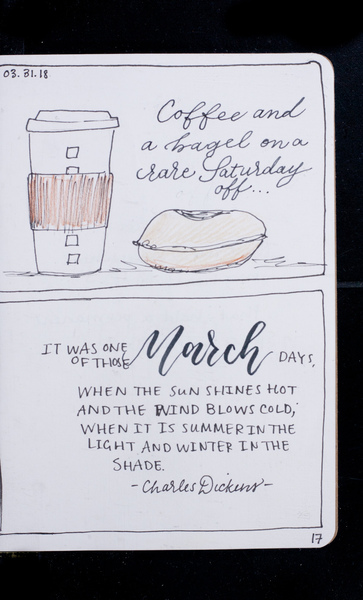 03.31.18
Coffee and
a bagel on a
rare Saturday
off...
IT WAS ONE
OF THOSE March DAYS,
WHEN THE SUN SHINES HOT
AND THE WIND BLOWS COLD;
WHEN IT IS SUMMER IN THE
LIGHT AND WINTER IN THE
SHADE.
- Charles Dickens -
17